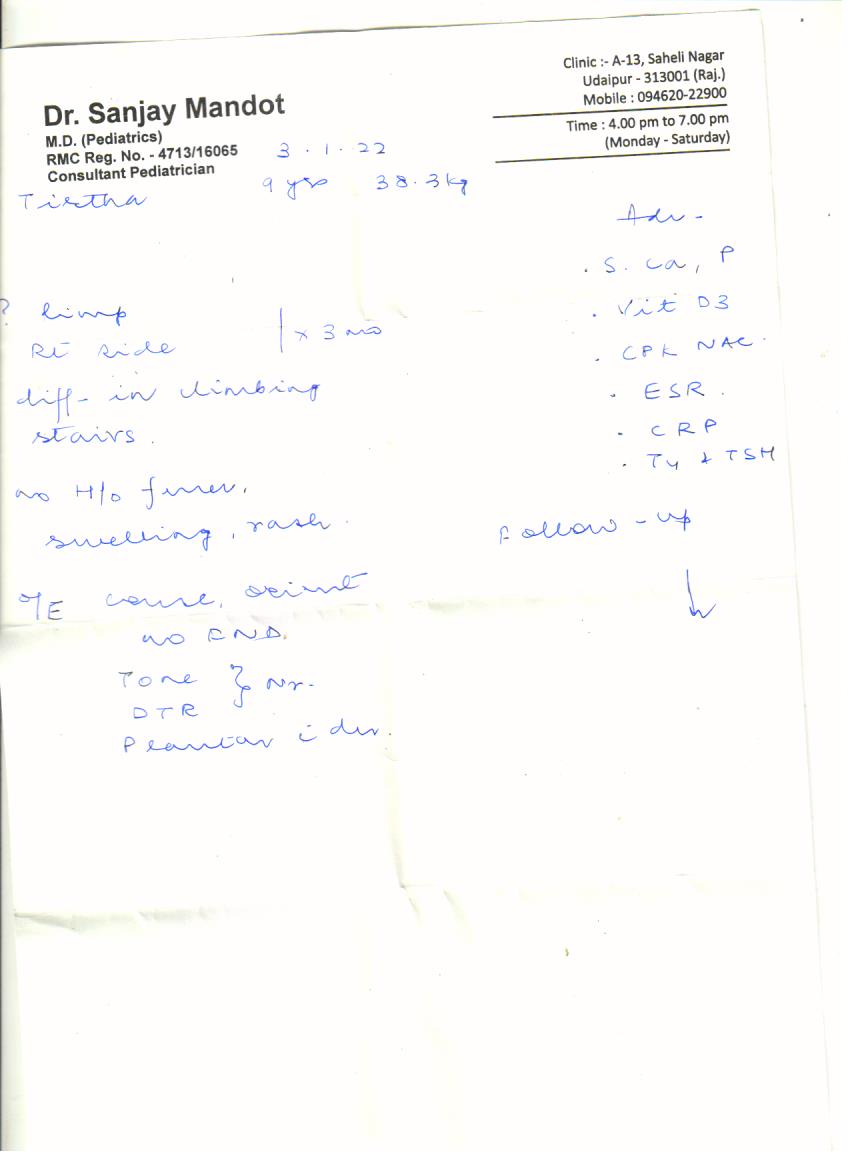 Dr. Sanjay Mandot
M.D. (Pediatrics)
RMC Reg. No. - 4713/16065
Consultant Pediatrician
Clinic :- A-13, Saheli Nagar
Udaipur - 313001 (Raj.)
Mobile : 094620-22900
Time : 4.00 pm to 7.00 pm
(Monday - Saturday)
3 . 1 . 22
Tirtha 9 yrs 38.3kg
? limp
Rt side
x 3 mo
diff- in climbing
stairs.
no H/o fever,
swelling, rash.
O/E consc, orient
no FND.
Tone } Nr.
DTR
Plantar
Adv -
. S. Ca, P
. Vit D3
. CPK NAC.
. ESR.
. CRP
. T4 & TSH
Follow-up